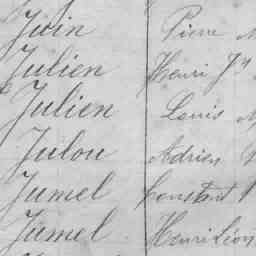 Juin Pierre
Julien Henri Jh
Julien Louis
Julou Adrien
Jumel Constant
Jumel Henri Léon